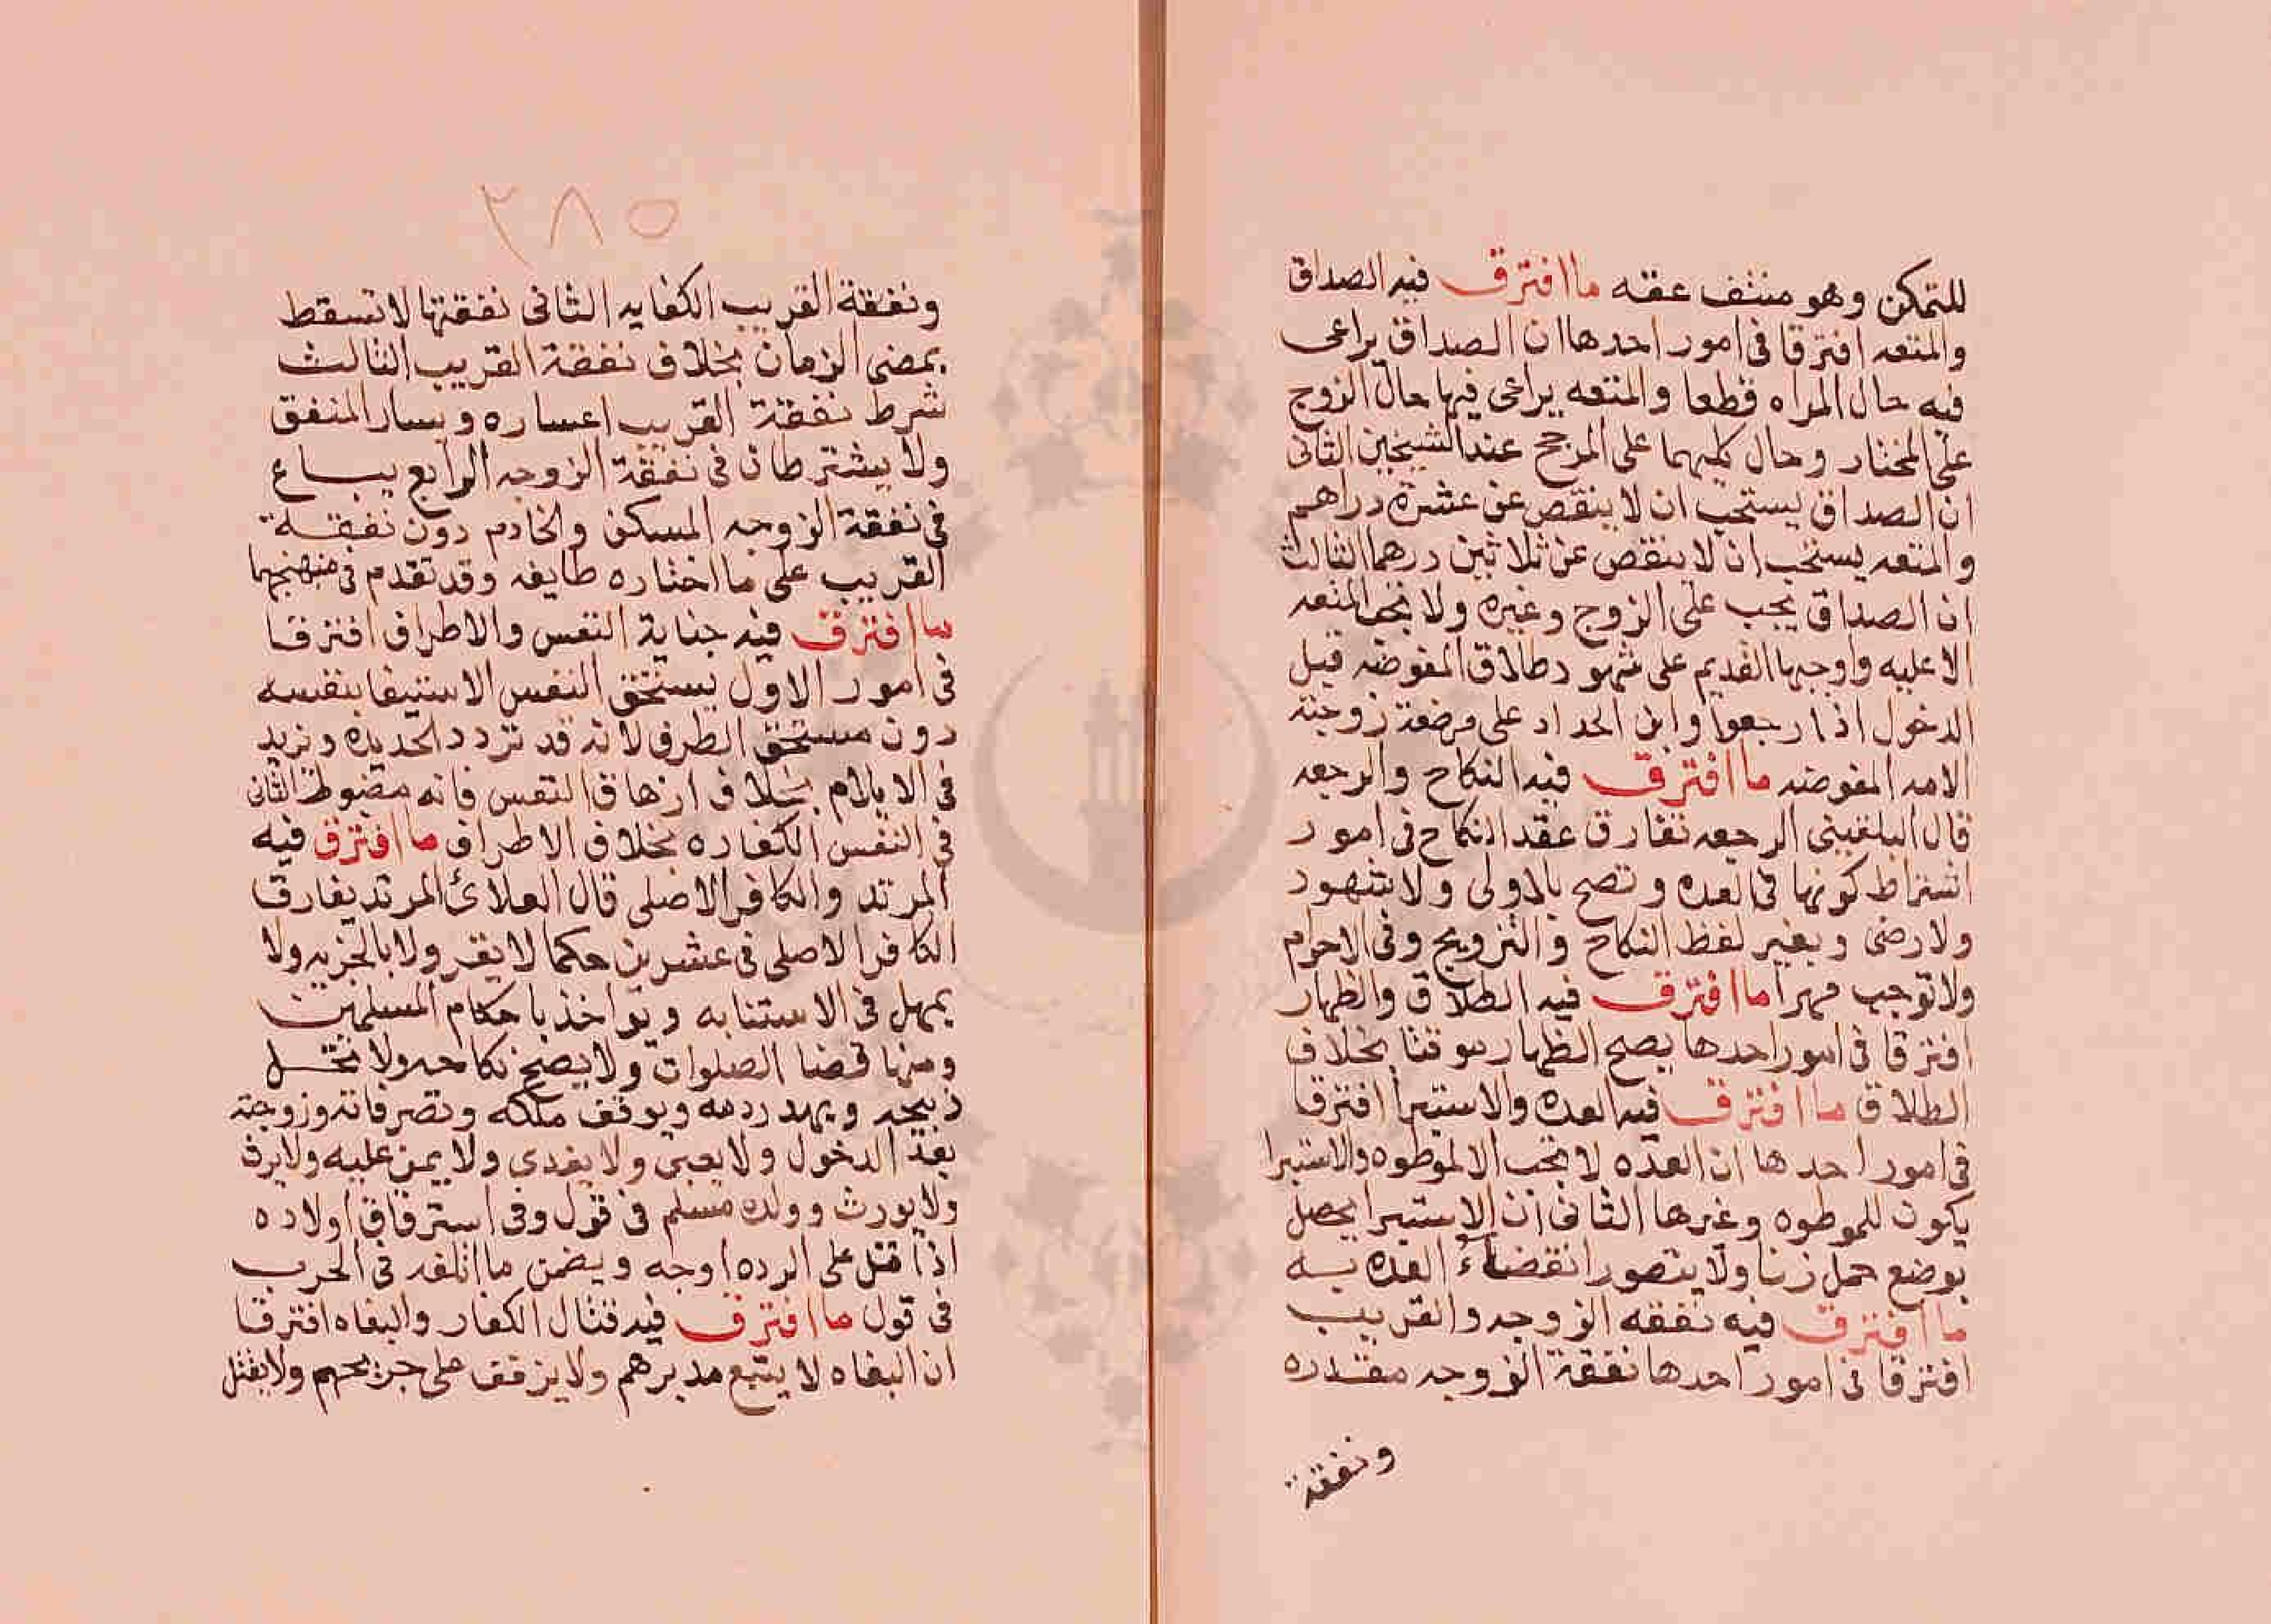 للتمكن وهو منتف عقه ما افترق فيه الصداق
والمتعه افترقا فى امور احدها ان الصداق يراعى
فيه حال المراه قطعا والمتعه يراعى فيها حال الزوج
على المختار وحال كليهما على المرجح عند الشيخين الثانى
ان الصداق يستحب ان لا ينقص عن عشرة دراهم
والمتعه يستحب ان لا ينقص عن ثلاثين درهما الثالث
ان الصداق يجب على الزوج وغيره ولا تجب المتعه
الا عليه واوجبها القديم على شهود طلاق المفوضه قبل
الدخول اذا رجعوا وابن الحداد على مرضعة زوجته
الامه المفوضه ما افترق فيه النكاح والرجعه
قال البلقينى الرجعه تفارق عقد النكاح فى امور
اشتراط كونها فى العده وتصح بلا ولى ولا شهود
ولا رضى وبغير لفظ النكاح والتزويج وفى الاحرام
ولا توجب مهرا ما افترق فيه الطلاق والظهار
افترقا فى امور احدها يصح الظهار موقتا بخلاف
الطلاق ما افترق فيه العده والاستبرا افترقا
فى امور احدها ان العده لا تجب الا لموطوه والاستبرا
يكون للموطوه وغيرها الثانى ان الاستبرا يحصل
بوضع حمل زنا ولا يتصور انقضاء العده به
ما افترق فيه نفقه الزوجه والقريب
افترقا فى امور احدها نفقة الزوجه مقدره
ونفقة
٢٨٥
ونفقة القريب الكفايه الثانى نفقتها لا تسقط
بمضى الزمان بخلاف نفقة القريب الثالث
شرط نفقة القريب اعساره ويسار المنفق
ولا يشترطان فى نفقة الزوجه الرابع يباع
فى نفقة الزوجه المسكن والخادم دون نفقة
القريب على ما اختاره طايفه وقد تقدم فى
ما افترق فيه جناية النفس والاطراف افترقا
فى امور الاول يستحق النفس الاستيفا بنفسه
دون مستحق الطرف لانه قد تردد الحديده ونزيد
فى الايلام بخلاف ازهاق النفس فانه مضبوط الثانى
فى النفس الكفاره بخلاف الاطراف ما افترق فيه
المرتد والكافر الاصلى قال العلائ المرتد يفارق
الكافر الاصلى فى عشرين حكما لا يقر ولا بالجزيه ولا
يمهل فى الاستتابه ويواخذ باحكام المسلمين
ومنها قضا الصلوات ولا يصح نكاحه ولا تحل
ذبيحه ويهدر دمه ويوقف ملكه وتصرفاته وزوجته
بعد الدخول ولا يسبى ولا يفدى ولا يمن عليه ولا يرث
ولا يورث وولده مسلم فى قول وفى استرقاق اولاده
اذا قتل على الرده اوجه ويضمن ما اتلفه فى الحرب
فى قول ما افترق فيه قتال الكفار والبغاه افترقا
ان البغاه لا يتبع مدبرهم ولا يزفف على جريحهم ولا يقتل